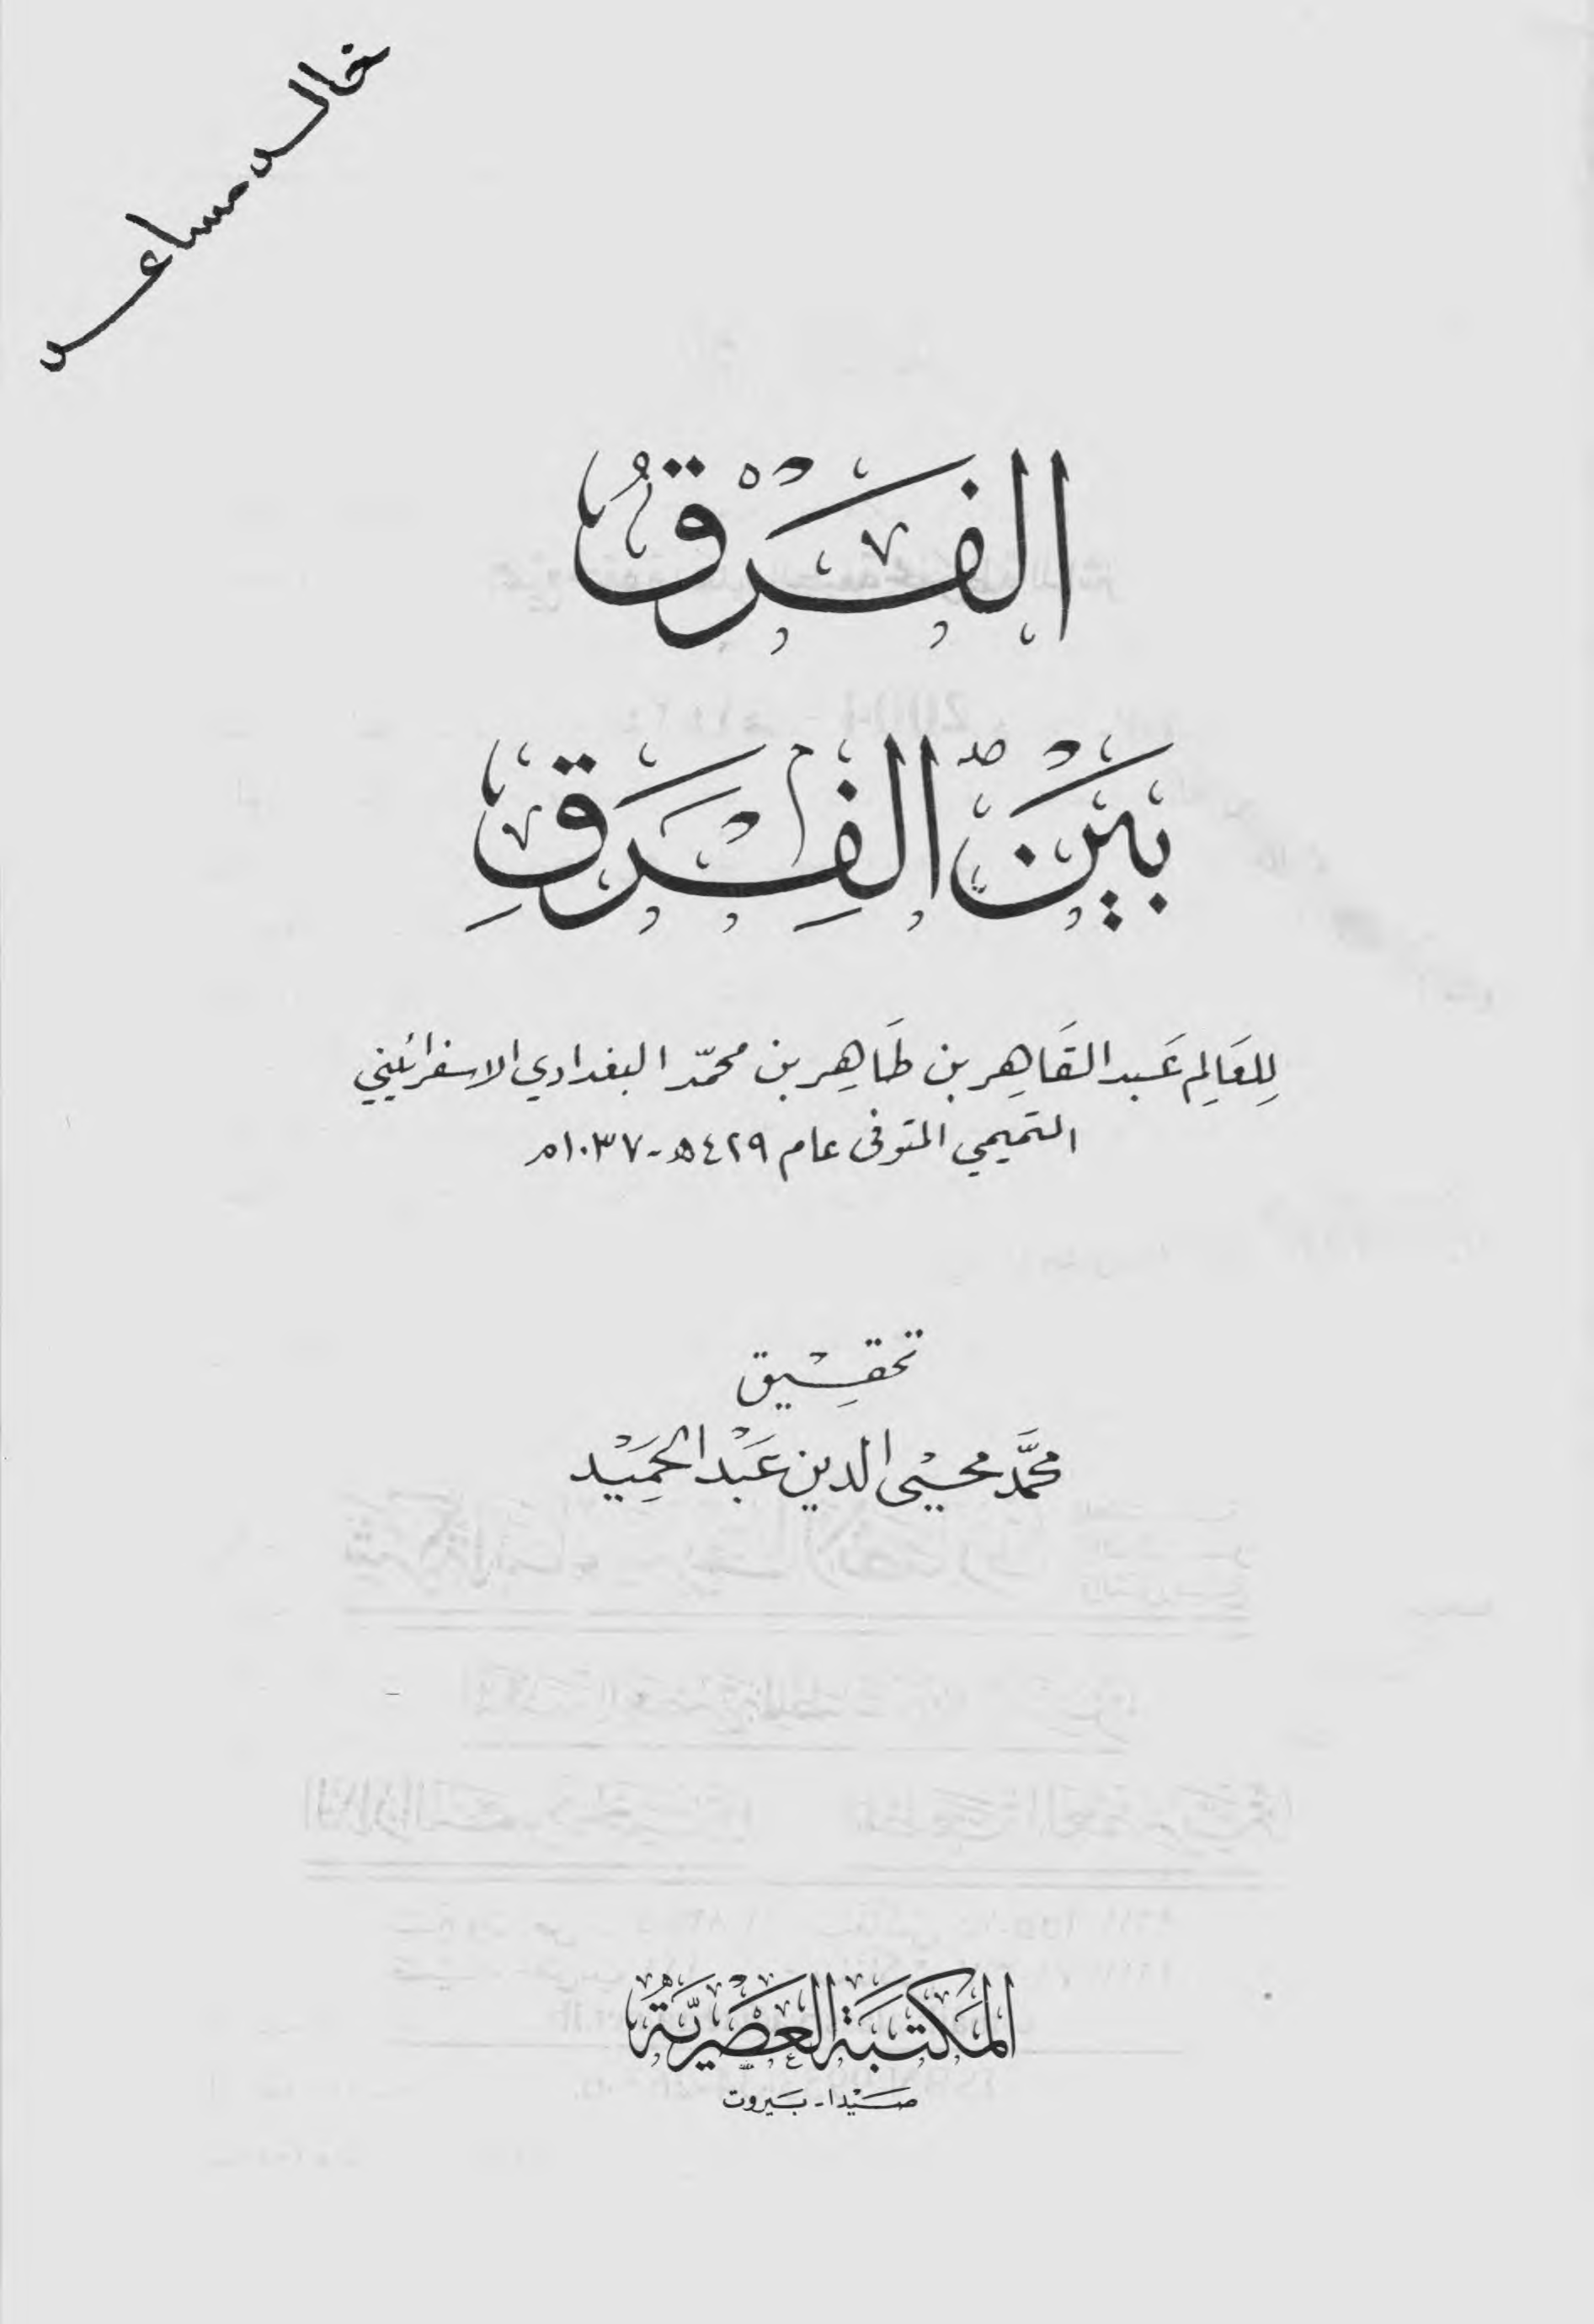 خالد مساعد
الفَرْقُ
بَيْنَ الفِرَقِ
لِلعَالِم عَبد القَاهِر بن طَاهِر بن محمّد البغدادي الاسفرائيني
التميمي المتوفى عام ٤٢٩هـ - ١٠٣٧م
تحقِيْق
محمَّد محيْي الدين عَبْد الحمِيَْد
المَكتَبَة العَصْرِيَّة
صَيْدا - بَيروت